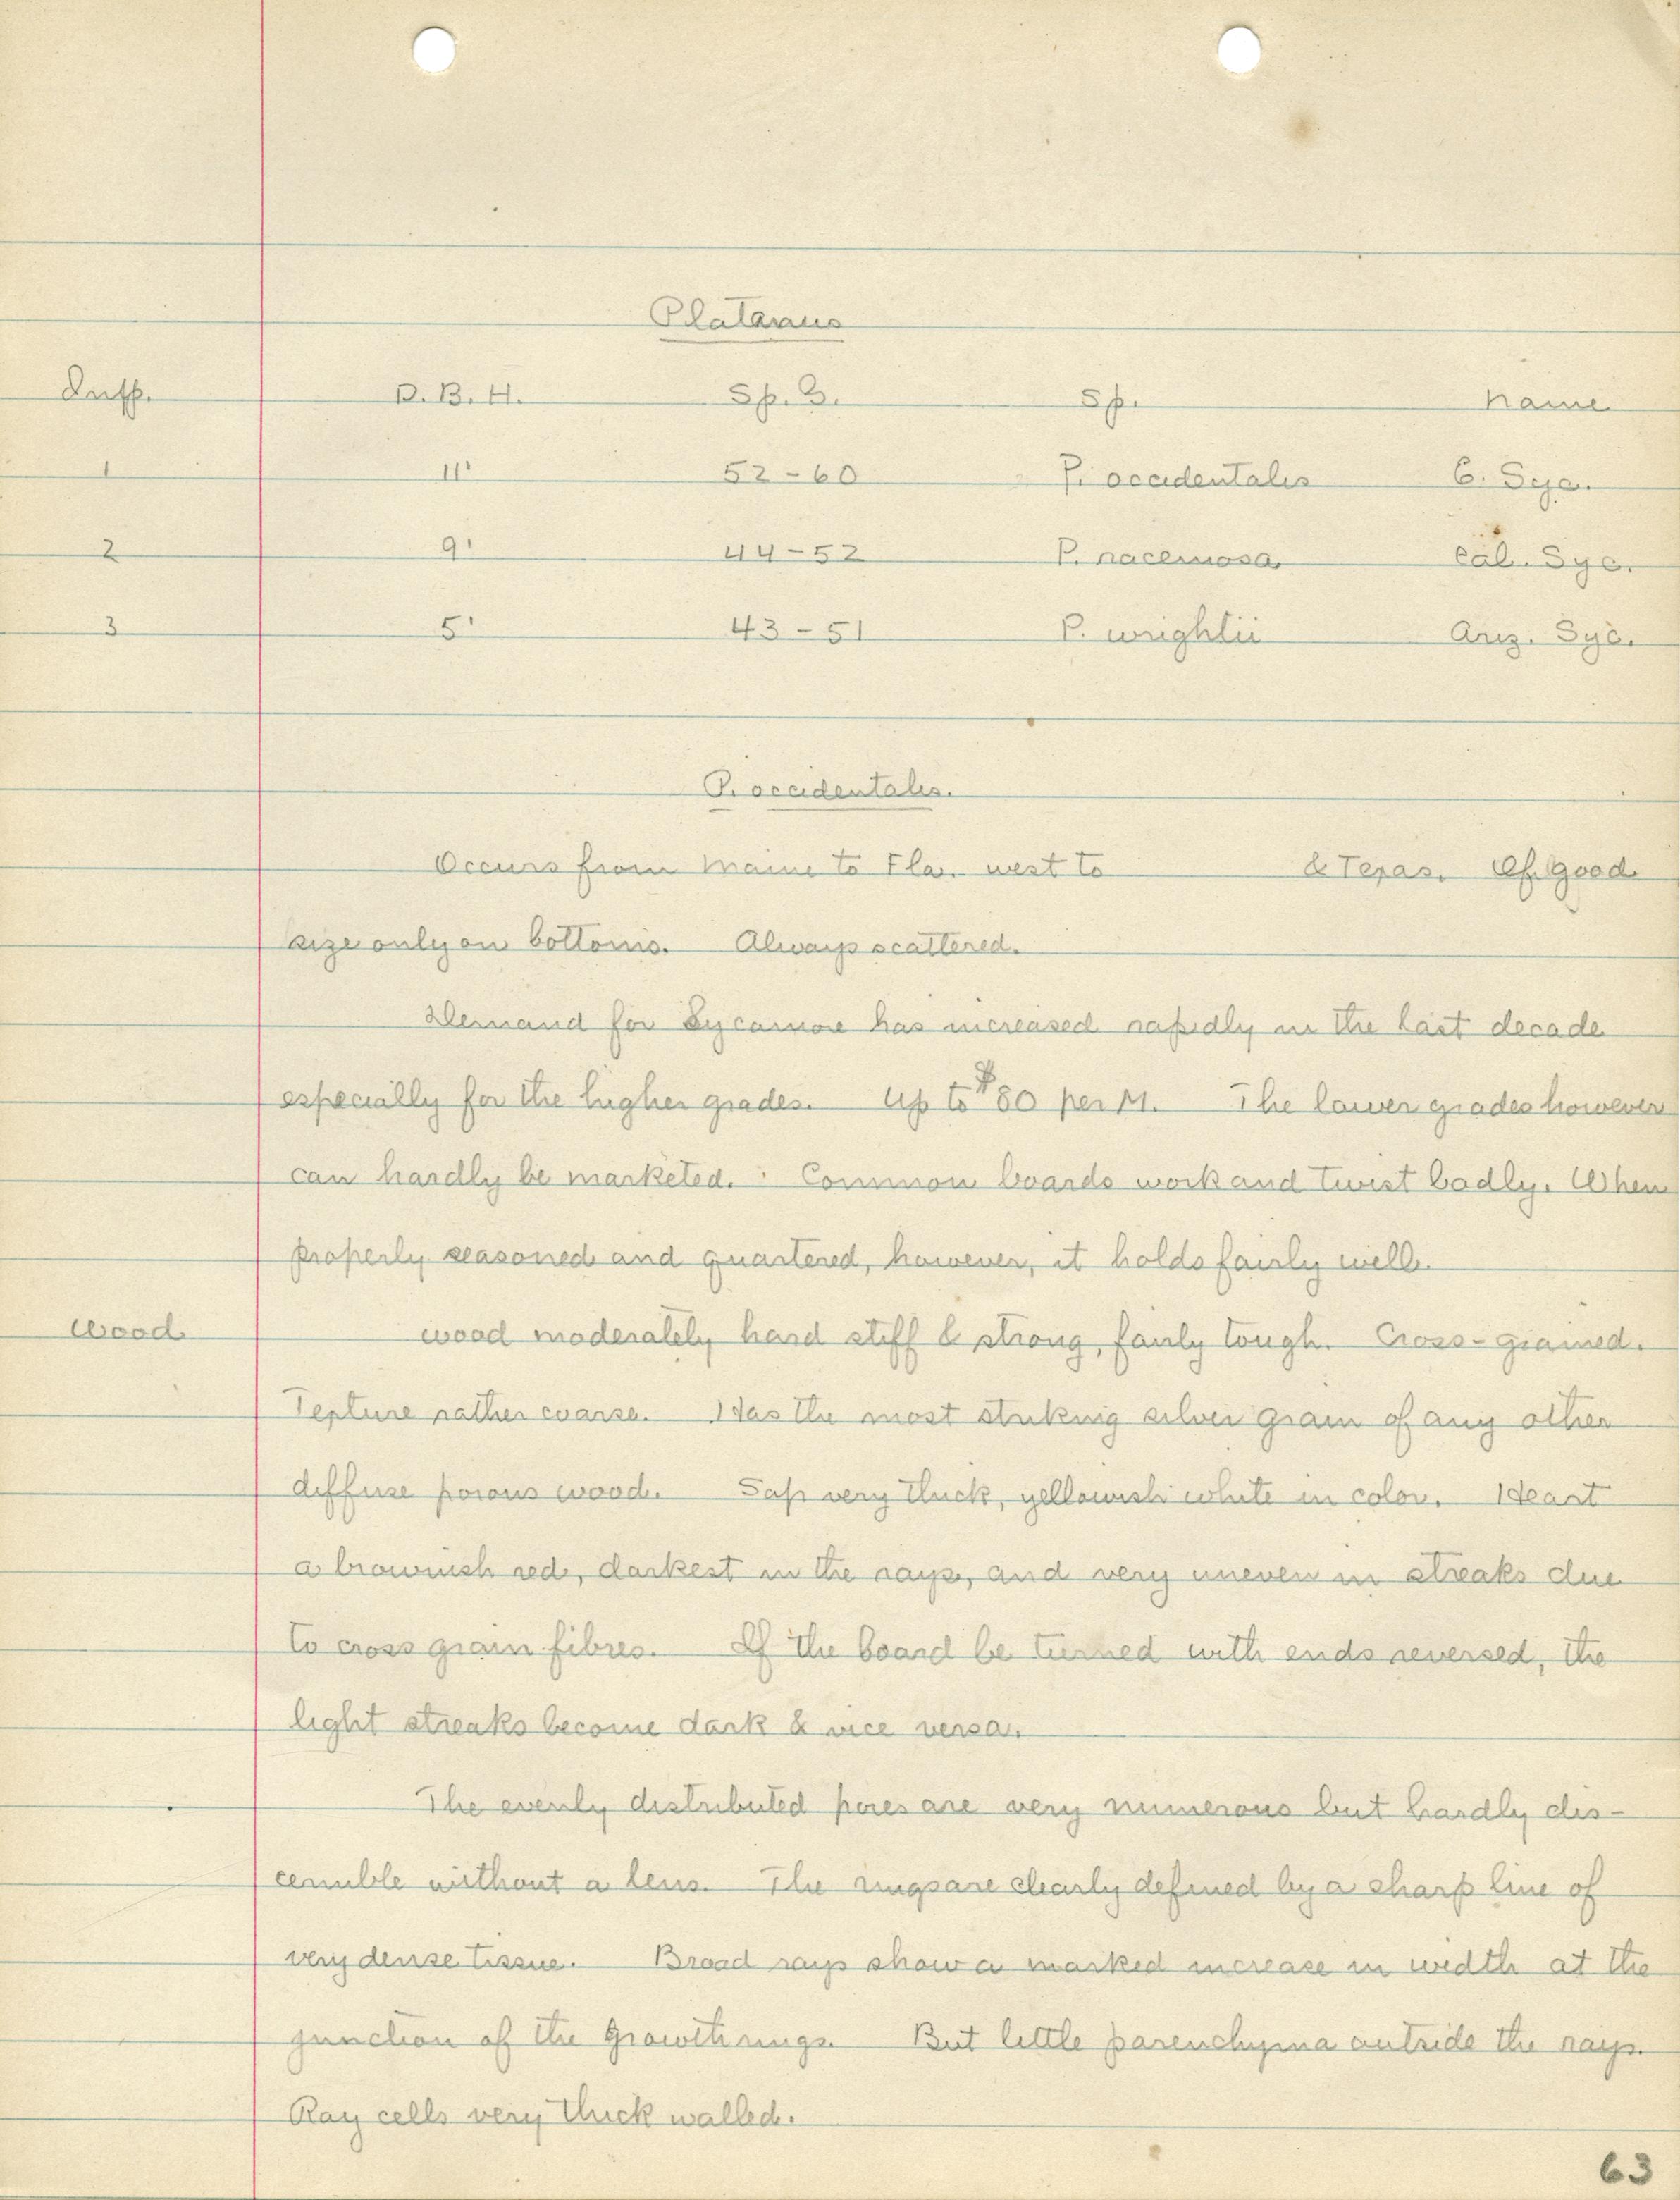 Platanus
Imp. D.B.H. Sp. G. Sp. Name
1 11' 52-60 P. occidentalis C. Syc.
2 9' 44-52 P. racemosa Cal. Syc.
3 5' 43-51 P. wrightii Ariz. Syc.
P. occidentalis.
Occurs from Maine to Fla. west to & Texas. Of good
size only on bottoms. Always scattered.
Demand for Sycamore has increased rapidly in the last decade
especially for the higher grades. Up to $80 per M. The lower grades however
can hardly be marketed. Common boards work and twist badly. When
properly seasoned and quartered, however, it holds fairly well.
Wood wood moderately hard stiff & strong, fairly tough. Cross-grained.
Texture rather coarse. Has the most striking silver grain of any other
diffuse porous wood. Sap very thick, yellowish white in color. Heart
a brownish red, darkest in the rays, and very uneven in streaks due
to cross grain fibres. If the board be turned with ends reversed, the
light streaks become dark & vice versa.
The evenly distributed pores are very numerous but hardly dis-
cernible without a lens. The rings are clearly defined by a sharp line of
very dense tissue. Broad rays show a marked increase in width at the
junction of the growth rings. But little parenchyma outside the rays.
Ray cells very thick walled.
63